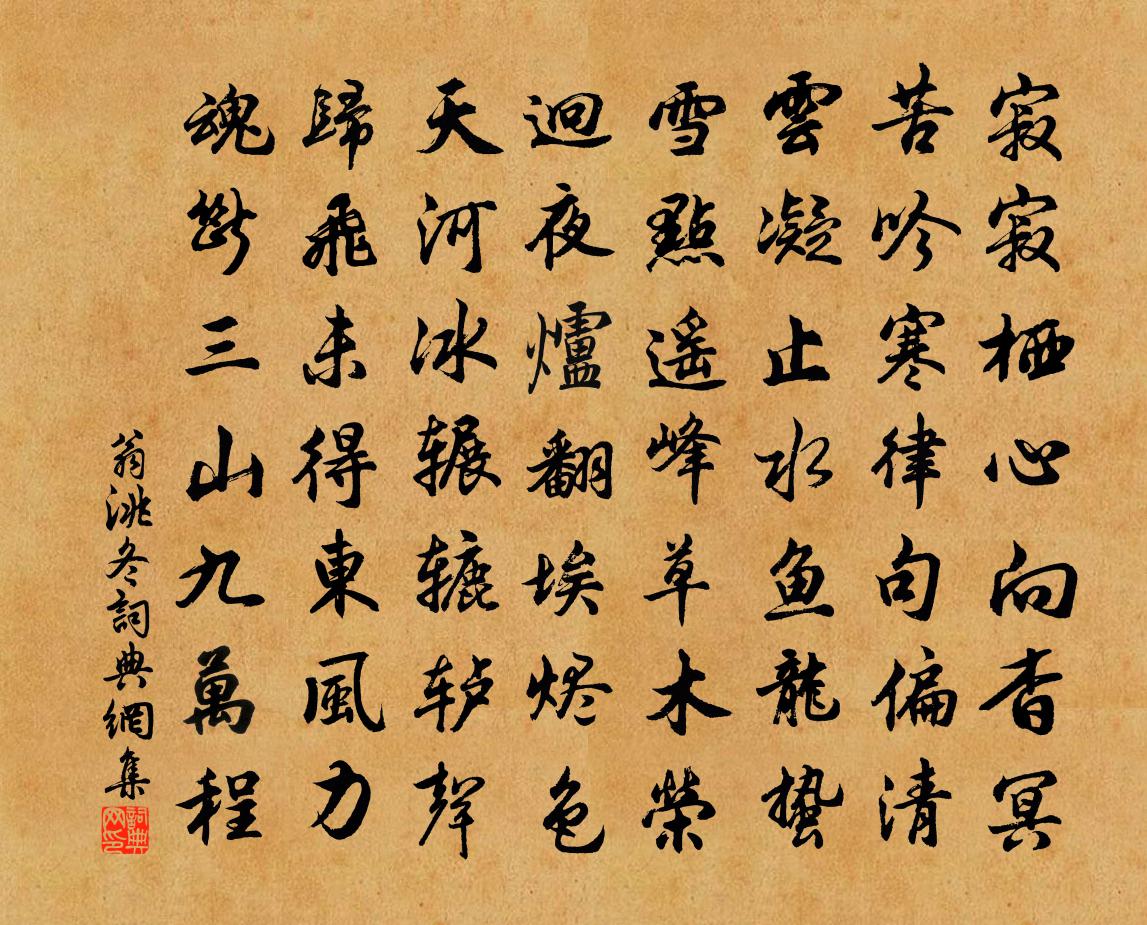 寂寂栖心向杳冥
苦吟寒律句偏清
雲凝止水鱼龍蛰
雪點遥峰草木榮
迥夜爐翻埃烬色
天河冰辗辘轳聲
歸飛未得東風力
魂斷三山九萬程
翁洮冬詞典網集
詞典网印